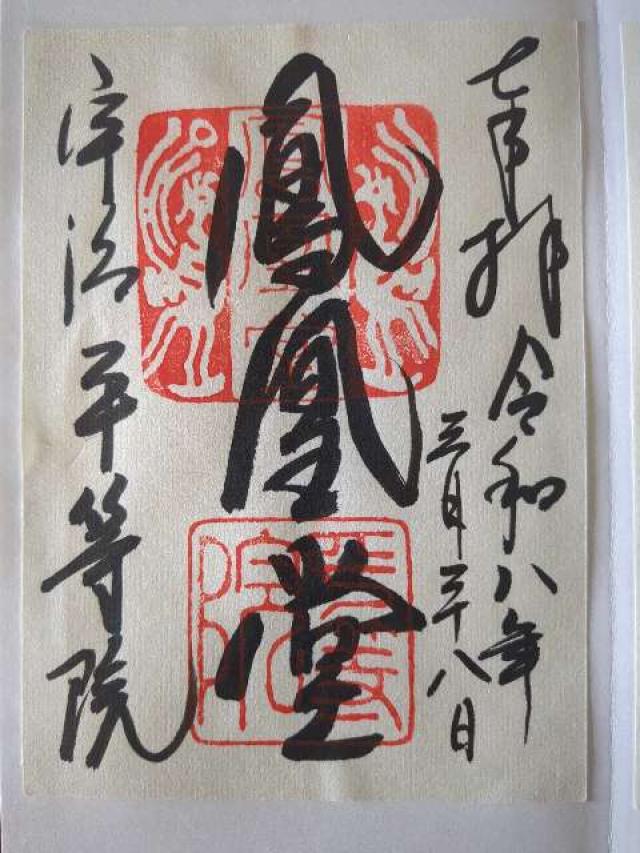 奉拝
令和八年
三月二十八日
鳳凰堂
宇治平等院